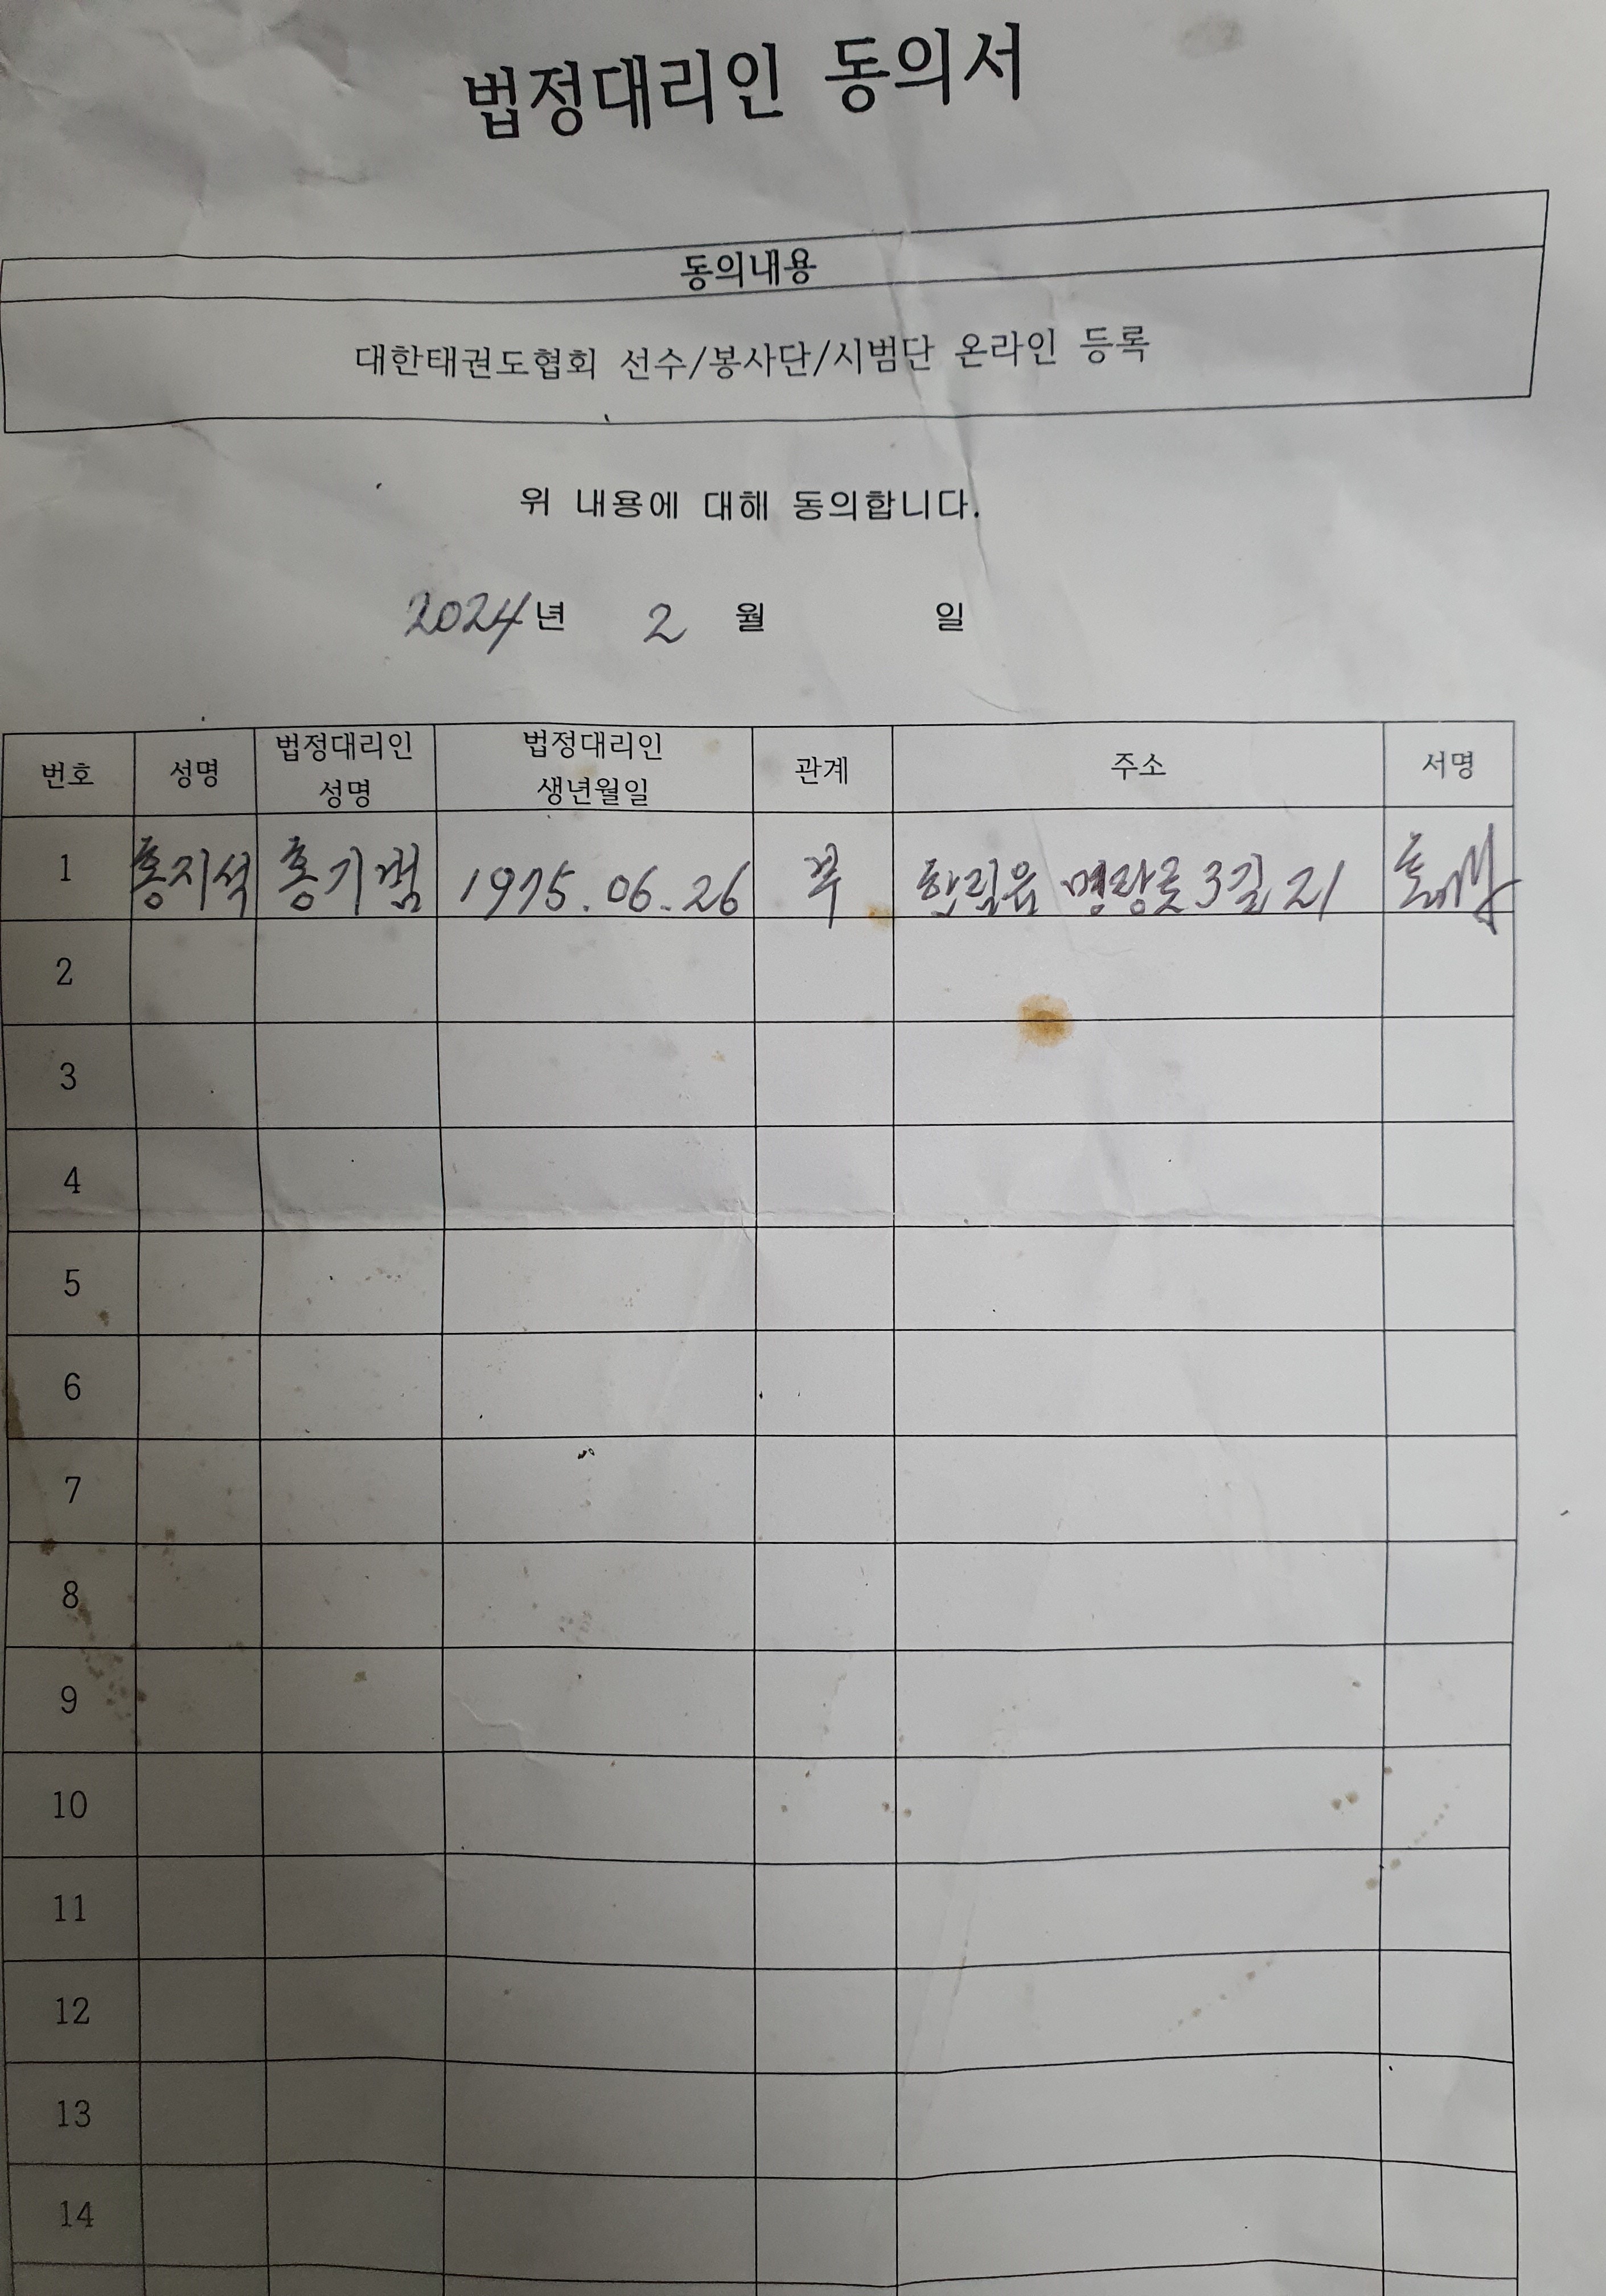 법정대리인 동의서
동의내용
대한태권도협회 선수/봉사단/시범단 온라인 등록
위 내용에 대해 동의합니다.
2024년 2 월 일
번호 성명 법정대리인 성명 법정대리인 생년월일 관계 주소 서명
1 홍지석 홍기범 1975.06.26 부 한림읍 명랑로 3길 21
2
3
4
5
6
7
8
9
10
11
12
13
14